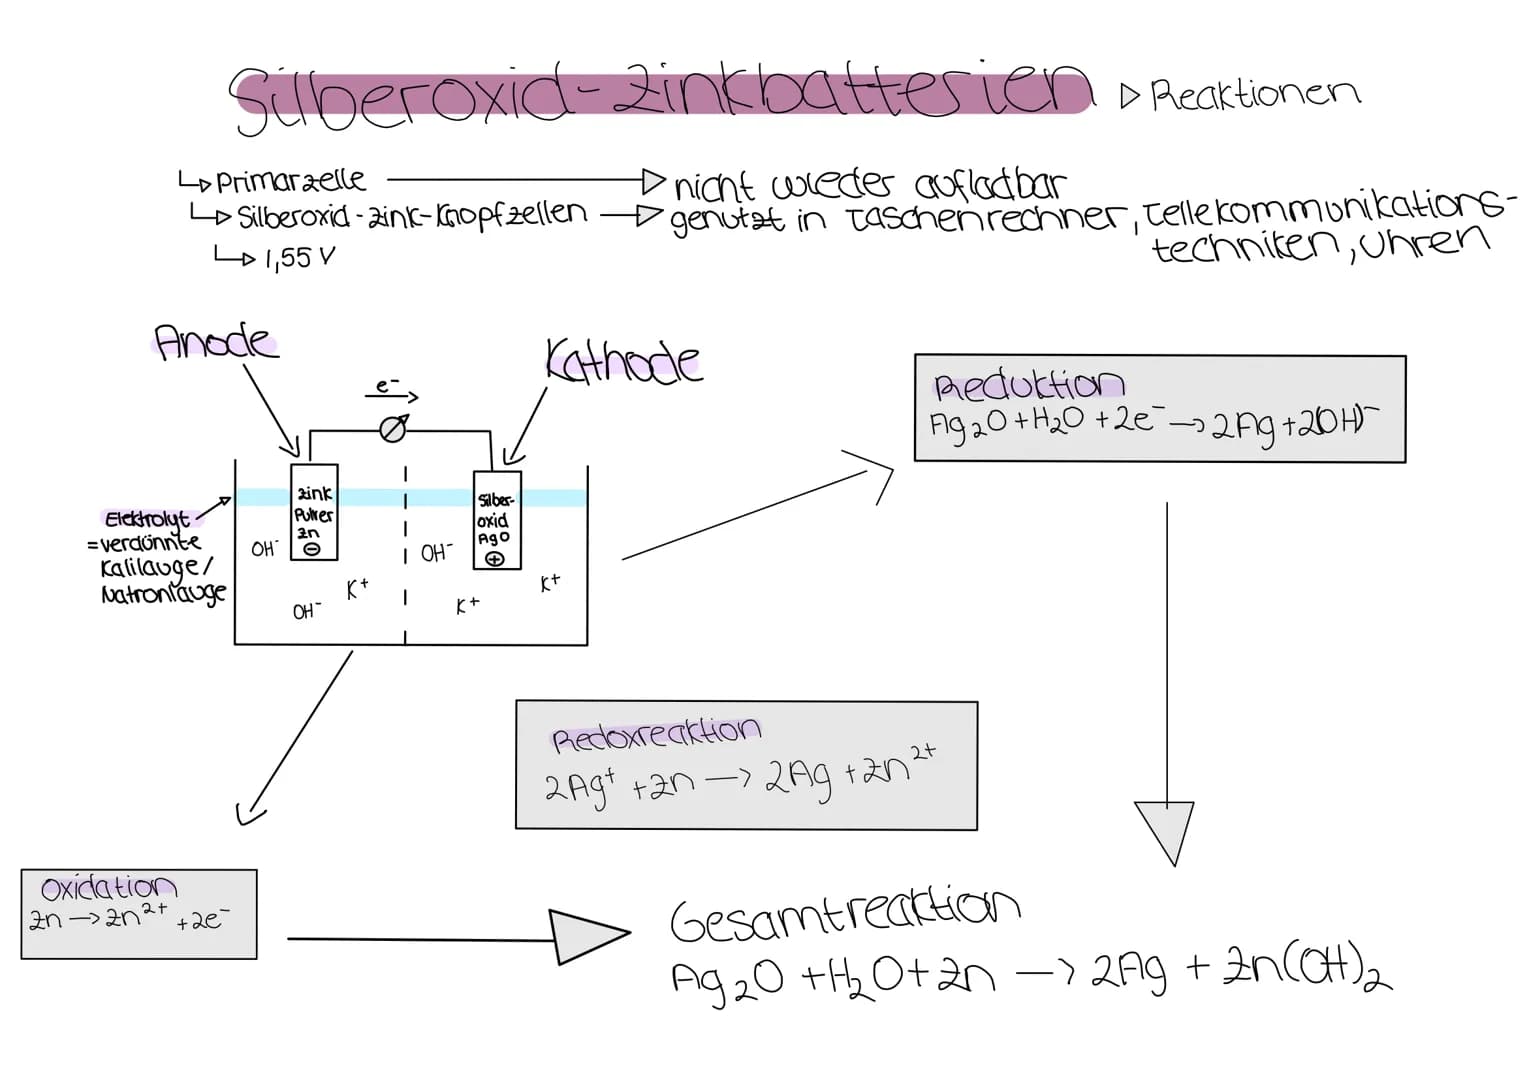 Silberoxid-Zinkbatterien ▷ Reaktionen
↳ Primärzelle → nicht wieder aufladbar
↳ Silberoxid-Zink-Knopfzellen → genutzt in Taschenrechner, Tellekommunikations-
techniken, Uhren
↳ 1,55 V
Anode
Kathode
e⁻
Zink
Pulver
Zn
⊖
Silber-
oxid
AgO
⊕
Elektrolyt
=verdünnte
Kalilauge/
Natronlauge
OH⁻
OH⁻
K⁺
OH⁻
K⁺
K⁺
Reduktion
Ag₂O + H₂O + 2e⁻ → 2Ag + 2(OH)⁻
Redoxreaktion
2Ag⁺ + Zn → 2Ag + Zn²⁺
Oxidation
Zn → Zn²⁺ + 2e⁻
Gesamtreaktion
Ag₂O + H₂O + Zn → 2Ag + Zn(OH)₂